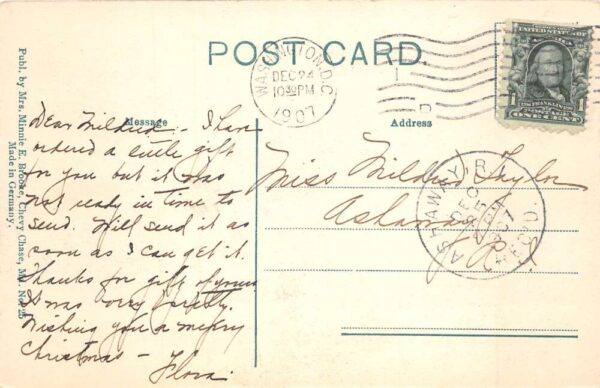 POST CARD.
WASHINGTON, D.C.
DEC 24
10 30 PM
1907
1
D
UNITED STATES OF
FRANKLIN
1 1
ONE CENT
Message
Address
Dear Mildred :- I have
ordered a little gift
for you but it was
not ready in time to
send. Will send it as
soon as I can get it.
Thanks for gift of yours
It was very pretty.
Wishing you a merry
Christmas -
Flora.
Miss Mildred Taylor
Ashaway
R.I.
ASHAWAY R.I.
DEC
25
PM
1907
REC'D
Publ. by Mrs. Minnie E. Brooke, Chevy Chase, Md. No. 25
Made in Germany.